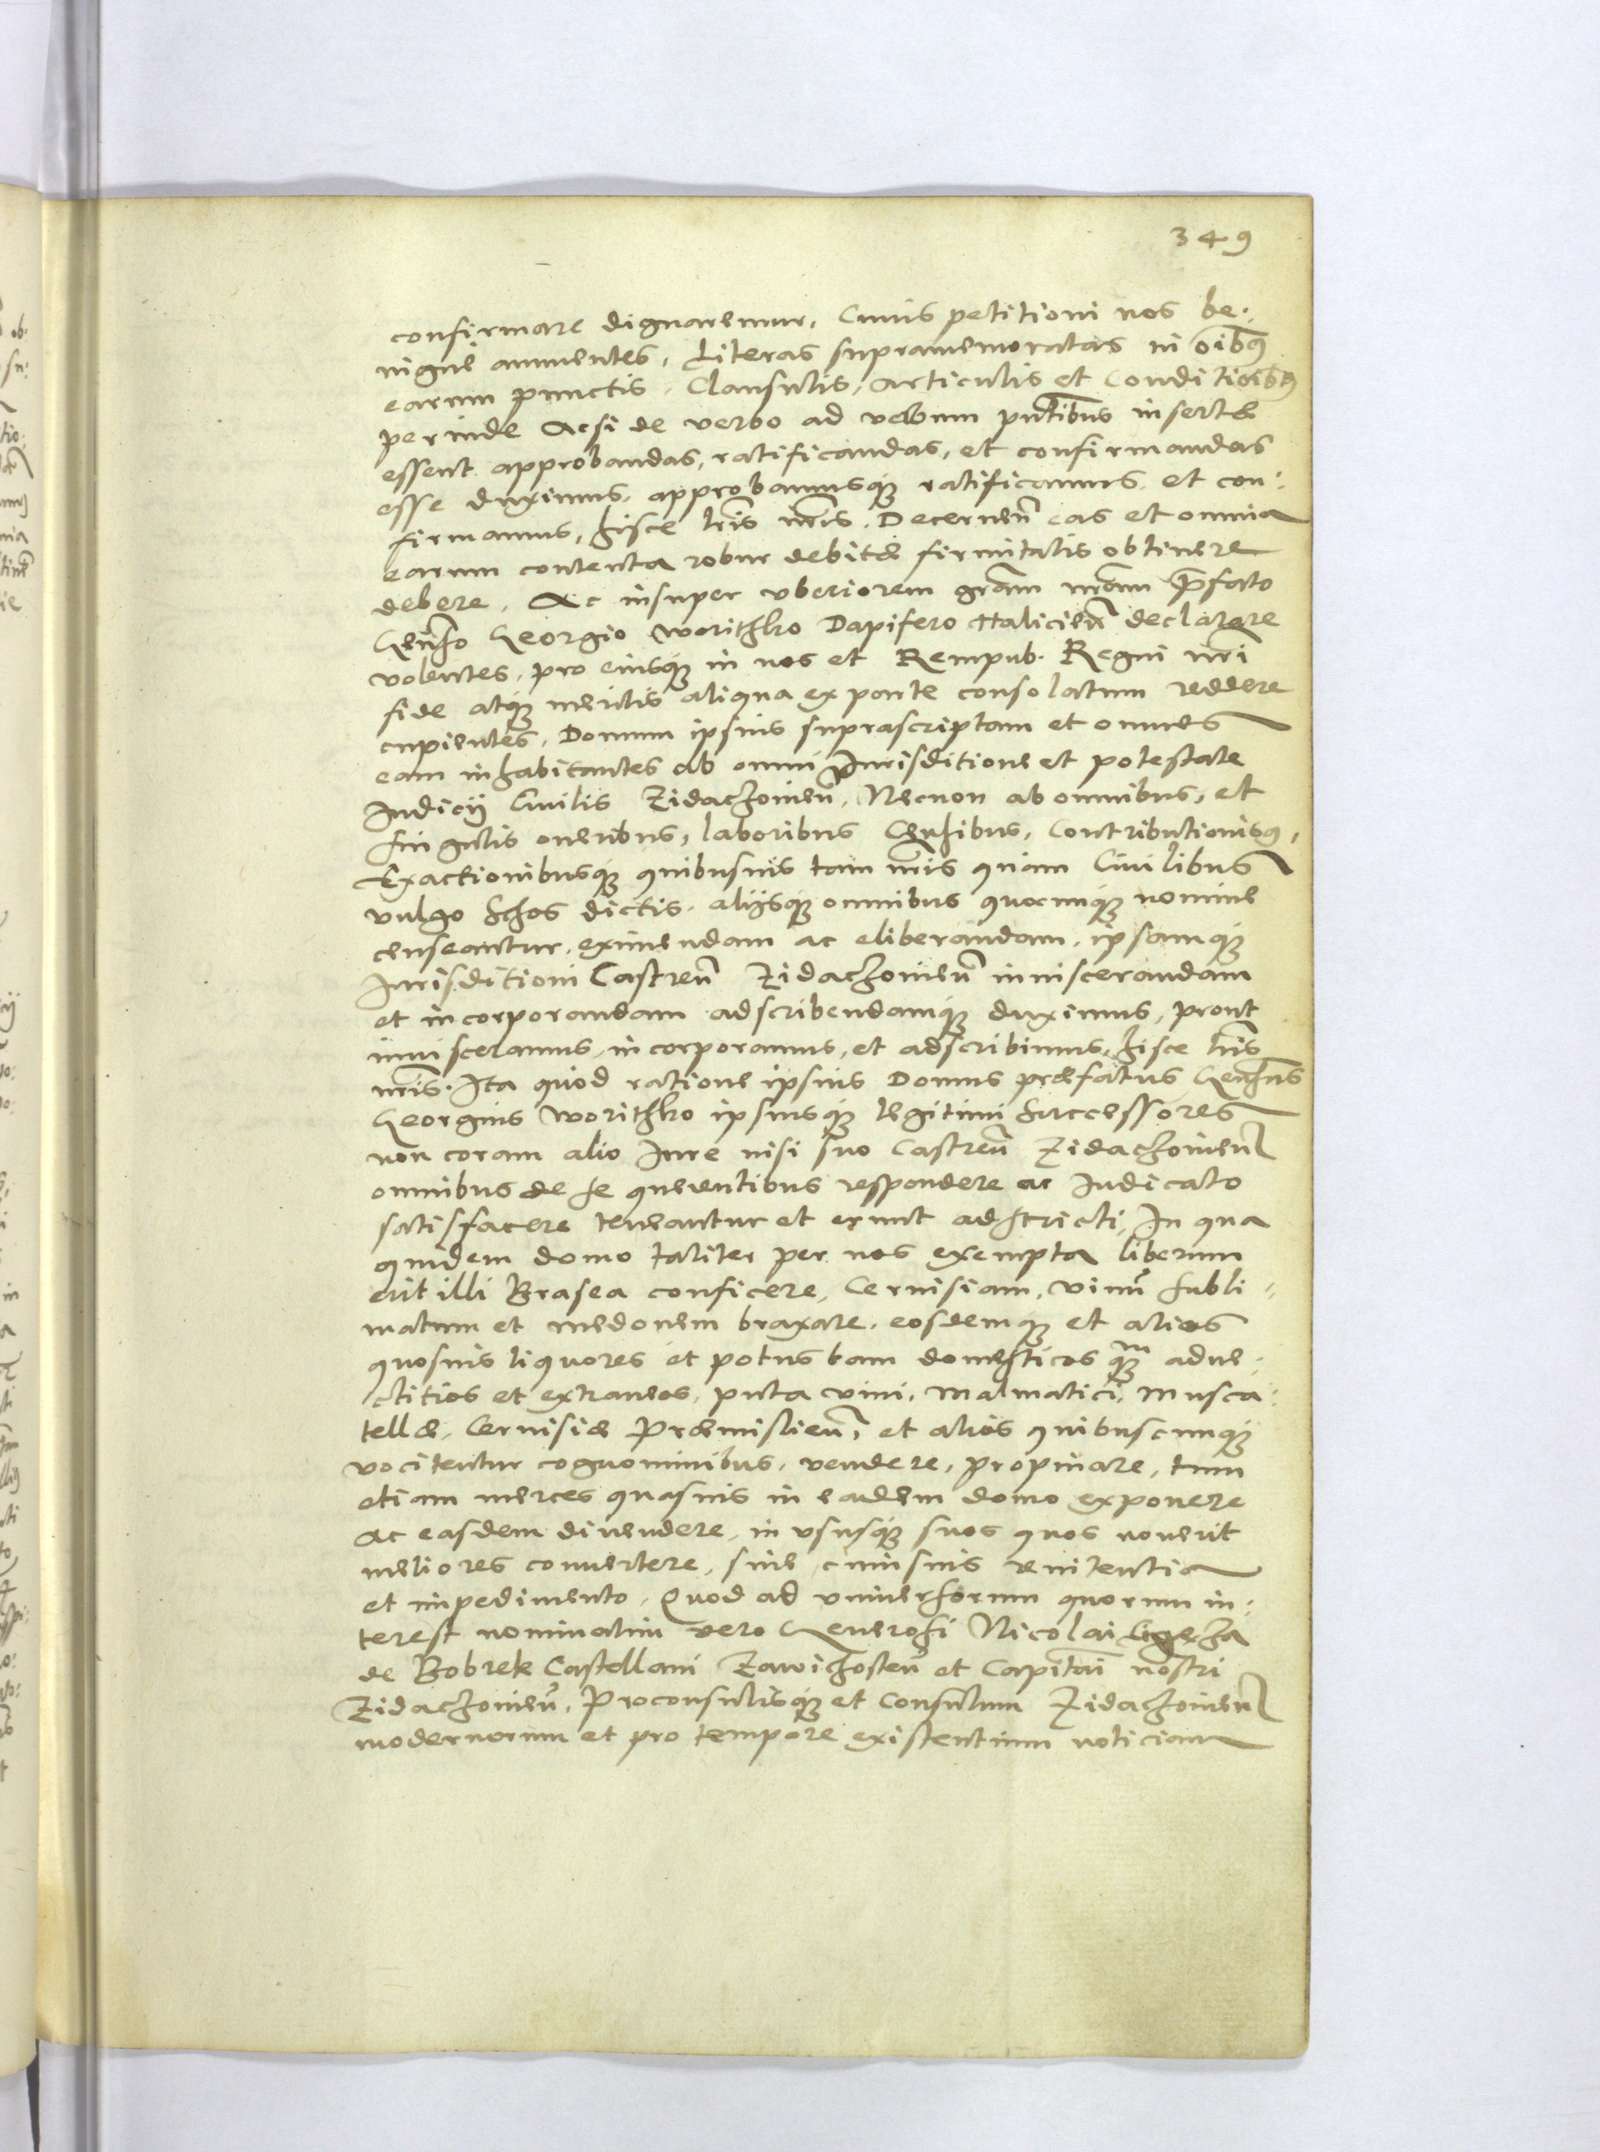 349
confirmare dignaremur, Cuius petitioni nos be-
nigne annuentes, Literas supramemoratas in oibus
earum punctis, Clausulis, articulis et Conditioibus
perinde Acsi de verbo ad verbum pntibus insertæ
essent approbandas, ratificandas, et confirmandas
esse duximus, approbamusque ratificamus et con-
firmamus, hisce lris nris. Decernen eas et omnia
earum contenta robur debitæ firmitatis obtinere
debere, Ac insuper vberiorem gram nram præfato
Genso Georgio Worithko Dapifero Halicien declarare
volentes, pro eiusque in nos et Rempub. Regni nri
fide atque meritis aliqua ex parte consolatum reddere
cupientes, Domum ipsius suprascriptam et omnes
eam inhabitantes ab omni Iurisditione et potestate
Iudicij Ciuilis Zidachouien, Necnon ab omnibus, et
singulis oneribus, laboribus Censibus, Contributionibus,
Exactionibusque quibusuis tam nris quam Ciuilibus
vulgo Schos dictis, alijsque omnibus quocunque nomine
censeantur, eximendam ac eliberandam, ipsamque
Iurisditioni Castren Zidachouien inuiscerandam
et incorporandam adscribendamque duximus, prout
inuisceramus, incorporamus, et adscribimus, hisce lris
nris. Ita quod ratione ipsius Domus præfatus Gensus
Georgius Worithko ipsiusque legitimi Successores
non coram alio Iure nisi suo Castren Zidachouien
omnibus de se querentibus respondere ac Iudicato
satisfacere teneantur et erunt adstricti, In qua
quidem domo taliter per nos exempta liberum
erit illi Brasea conficere, Ceruisiam, vinu subli-
matum et medonem braxare, eosdemque et alios
quosuis liquores et potus tam domesticos qm adue-
ctitios et extraneos, puta vini, Malmatici, Musca-
tellæ, Ceruisiæ Præmislien, et alios quibuscunque
vocitentur cognominibus, vendere, propinare, tum
etiam merces quasuis in eadem domo exponere
ac easdem diuendere, in vsusque suos quos nouerit
meliores conuertere, sine cuiusuis renitentia
et impedimento. Quod ad vniuersorum quorum in-
terest nominatim vero Generosi Nicolai Ligęza
de Bobrek Castellani Zawichosten et Capitai nostri
Zidachouien, Proconsulisque et Consulum Zidachouien
modernorum et pro tempore existentium noticiam